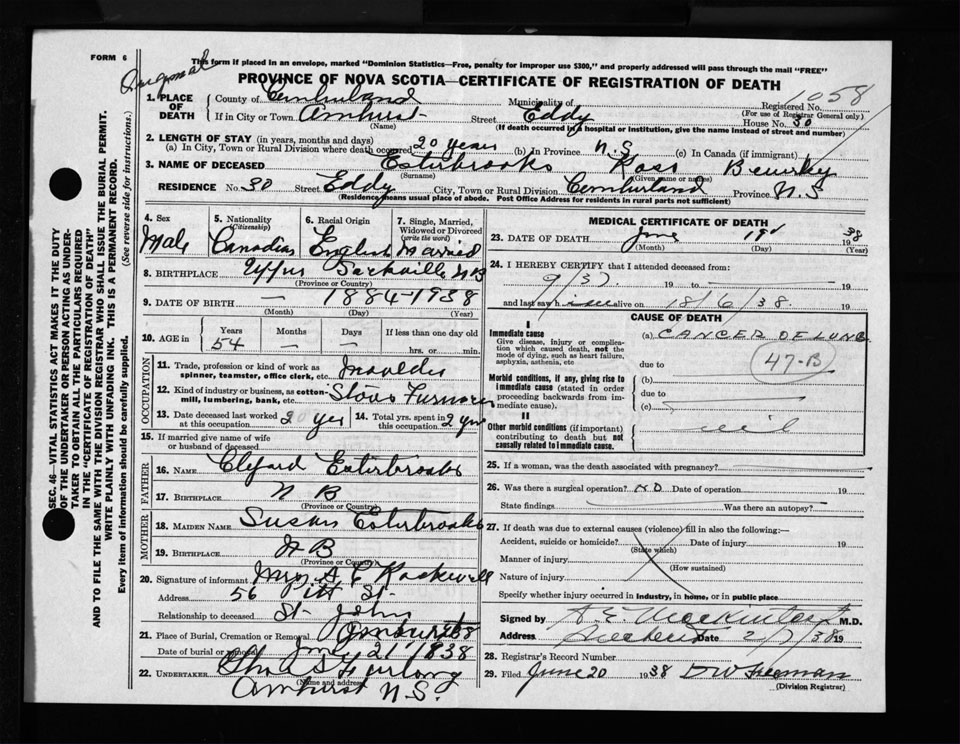 FORM 6
Original
This form if placed in an envelope, marked "Dominion Statistics—Free, penalty for improper use $300," and properly addressed will pass through the mail "FREE"
PROVINCE OF NOVA SCOTIA—CERTIFICATE OF REGISTRATION OF DEATH
1058
1. PLACE OF DEATH
County of Cumberland Municipality of Registered No.
(For use of Registrar General only)
If in City or Town Amherst Street Eddy House No. 30
(Name) (If death occurred in a hospital or institution, give the name instead of street and number)
2. LENGTH OF STAY (in years, months and days)
(a) In City, Town or Rural Division where death occurred 20 years (b) In Province N.S. (c) In Canada (if immigrant)
3. NAME OF DECEASED Esterbrooks Ross
(Surname) (Given name or names)
RESIDENCE No. 30 Street Eddy City, Town or Rural Division Cumberland Province N.S
(Residence means usual place of abode. Post Office Address for residents in rural parts not sufficient)
4. Sex 5. Nationality 6. Racial Origin 7. Single, Married, Widowed or Divorced
(Citizenship) (write the word)
Male Canadian English Married
8. BIRTHPLACE Upper Sackville NB
(Province or Country)
9. DATE OF BIRTH — 1884-1938
(Month) (Day) (Year)
10. AGE in Years Months Days If less than one day old
54 — — hrs. or min.
OCCUPATION
11. Trade, profession or kind of work as spinner, teamster, office clerk, etc. Moulder
12. Kind of industry or business, as cotton-mill, lumbering, bank, etc. Stove
13. Date deceased last worked at this occupation 14. Total yrs. spent in this occupation
15. If married give name of wife or husband of deceased
FATHER
16. NAME Clyfard Esterbrooks
17. BIRTHPLACE N B
(Province or Country)
MOTHER
18. MAIDEN NAME Susan Esterbrooks
19. BIRTHPLACE N B
(Province or Country)
20. Signature of informant Mrs. A E Rockwell
Address 56 Pitt St.
Relationship to deceased St. John
21. Place of Burial, Cremation or Removal Amherst
Date of burial or removal 21 1938
22. UNDERTAKER Furlong
(Name and address)
Amherst N.S.
MEDICAL CERTIFICATE OF DEATH
23. DATE OF DEATH June 19 1938
(Month) (Day) (Year)
24. I HEREBY CERTIFY that I attended deceased from:
9/37 19 to 19
and last saw him alive on 18/6/38. 19
CAUSE OF DEATH
I
Immediate cause
Give disease, injury or complication which caused death, not the mode of dying, such as heart failure, asphyxia, asthenia, etc
(a) CANCER OF LUNG
47-B
due to
Morbid conditions, if any, giving rise to immediate cause (stated in order proceeding backwards from immediate cause).
(b)
due to
(c)
II
Other morbid conditions (if important) contributing to death but not causally related to immediate cause.
nil
25. If a woman, was the death associated with pregnancy?
26. Was there a surgical operation? NO Date of operation 19
State findings Was there an autopsy?
27. If death was due to external causes (violence) fill in also the following:—
Accident, suicide or homicide? Date of injury 19
(State which)
Manner of injury
(How sustained)
Nature of injury
Specify whether injury occurred in industry, in home, or in public place
Signed by A. E. Mackintosh M.D.
Address Date 2/7/38 19
28. Registrar's Record Number
29. Filed June 20 1938 DW Freeman
(Division Registrar)
SEC. 46—VITAL STATISTICS ACT MAKES IT THE DUTY
OF THE UNDERTAKER OR PERSON ACTING AS UNDER-
TAKER TO OBTAIN ALL THE PARTICULARS REQUIRED
IN THE "CERTIFICATE OF REGISTRATION OF DEATH"
AND TO FILE THE SAME WITH THE DIVISION REGISTRAR WHO SHALL ISSUE THE BURIAL PERMIT.
WRITE PLAINLY WITH UNFADING INK. THIS IS A PERMANENT RECORD.
Every item of information should be carefully supplied. (See reverse side for instructions.)